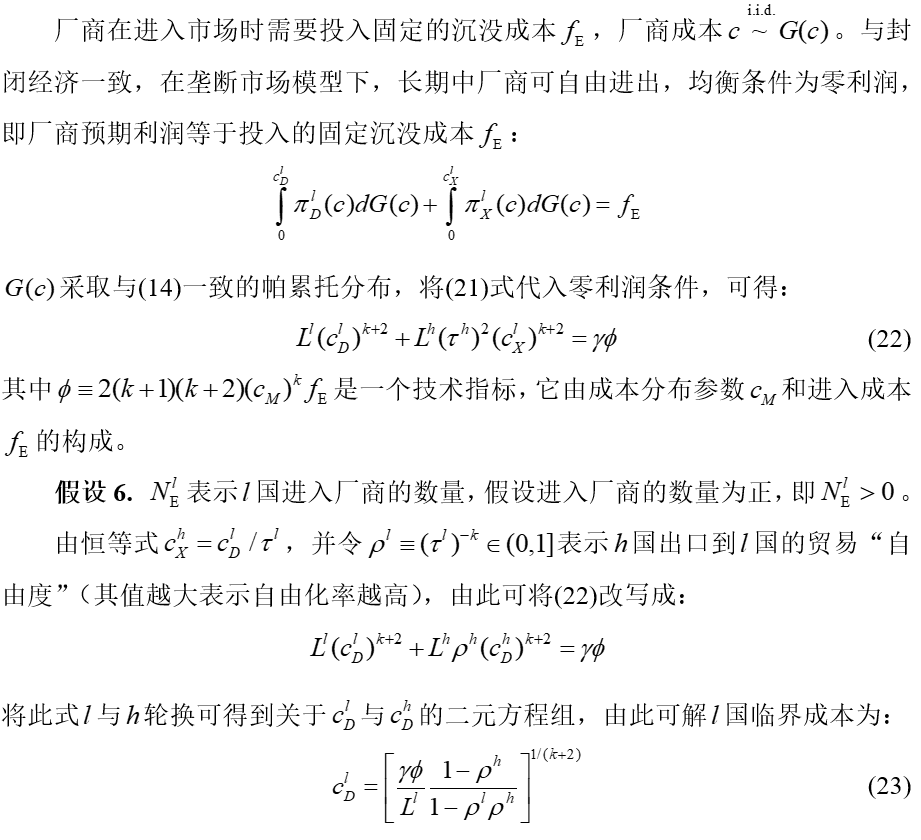 厂商在进入市场时需要投入固定的沉没成本 f_E，厂商成本 c i.i.d. ~ G(c)。与封
闭经济一致，在垄断市场模型下，长期中厂商可自由进出，均衡条件为零利润，
即厂商预期利润等于投入的固定沉没成本 f_E：
∫_0^{c_D^l} π_D^l(c)dG(c) + ∫_0^{c_X^l} π_X^l(c)dG(c) = f_E
G(c) 采取与(14)一致的帕累托分布，将(21)式代入零利润条件，可得：
L^l(c_D^l)^{k+2} + L^h(τ^h)^2(c_X^l)^{k+2} = γϕ (22)
其中 ϕ ≡ 2(k+1)(k+2)(c_M)^k f_E 是一个技术指标，它由成本分布参数 c_M 和进入成本
f_E 的构成。
假设 6. N_E^l 表示 l 国进入厂商的数量，假设进入厂商的数量为正，即 N_E^l > 0。
由恒等式 c_X^h = c_D^l / τ^l，并令 ρ^l ≡ (τ^l)^{-k} ∈ (0,1] 表示 h 国出口到 l 国的贸易“自
由度”（其值越大表示自由化率越高），由此可将(22)改写成：
L^l(c_D^l)^{k+2} + L^h ρ^h(c_D^h)^{k+2} = γϕ
将此式 l 与 h 轮换可得到关于 c_D^l 与 c_D^h 的二元方程组，由此可解 l 国临界成本为：
c_D^l = [ (γϕ / L^l) (1-ρ^h) / (1-ρ^l ρ^h) ]^{1/(k+2)} (23)